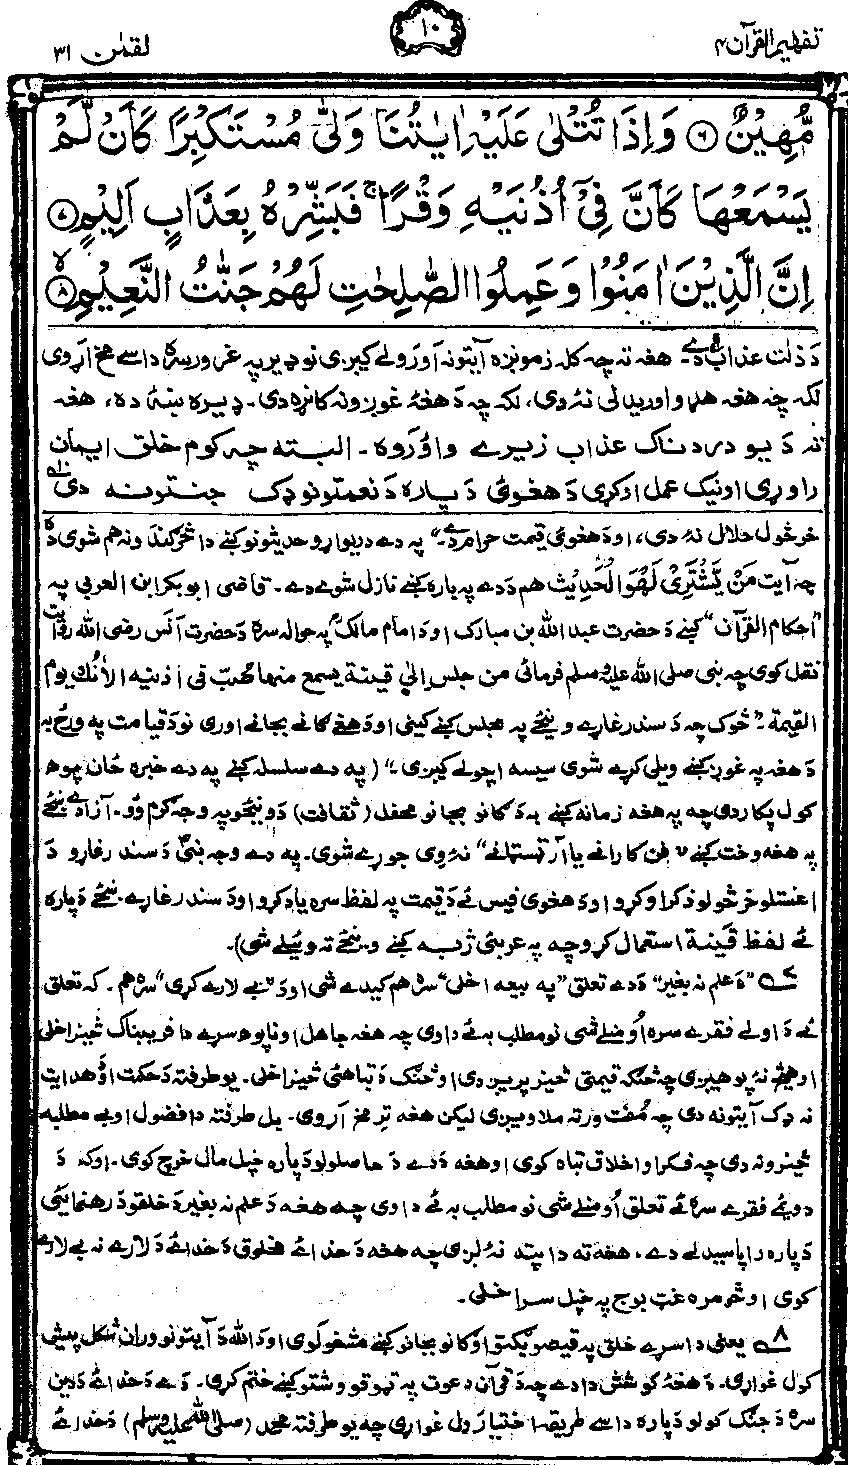 تفهيم القرآن ۴
۱۰
لقمٰن ۳۱
مُّهِيْنٌ ۶ وَاِذَا تُتْلٰى عَلَيْهِ اٰيٰتُنَا وَلّٰى مُسْتَكْبِرًا كَاَنْ لَّمْ
يَسْمَعْهَا كَاَنَّ فِيْۤ اُذُنَيْهِ وَقْرًا ۚ فَبَشِّرْهُ بِعَذَابٍ اَلِيْمٍ ۷
اِنَّ الَّذِيْنَ اٰمَنُوْا وَعَمِلُوا الصّٰلِحٰتِ لَهُمْ جَنّٰتُ النَّعِيْمِ ۸ لا
دَ ذلت عذاب دے۔ هغه ته چه کله زمونږه آيتونه اَورولے کيږى نو ډير په غرور سره داسے مخ اَړوى
لکه چه هغه هډو اوريدلى نۀ دى، لکه چه دَ هغۀ غوږونه کاڼۀ دى۔ ډيره ښۀ ده، هغه
ته دَ يو دردناک عذاب زيرے واؤروه۔ البته چه کوم خلق ايمان
راوړى او نيک عمل اوکړى دَ هغوئ دَ پاره دَ نعمتونو ډک جنتونه دى
خرڅول حلال نۀ دى، او دَ هغوئ قيمت حرام دے۔" په دے ډير و روحديثونو کښے دا څرګندونه هم شوى ده
چه آيت مَنْ يَّشْتَرِىْ لَهْوَ الْحَدِيْثِ هم دَ دے په باره کښے نازل شوے دے۔ قاضى ابوبکر ابن العربى په
"احکام القرآن" کښے دَ حضرت عبد الله بن مبارک او دَ امام مالکؒ په حواله سره دَ حضرت انس رضى الله روايت
نقل کوى چه نبى صلى الله عليه وسلم فرمائى من جلس الىٰ قينة يسمع منها صُبّ فى اذنيه الاٰنُك يوم
القيٰمة۔ "څوک چه دَ سندرغاړے وينځے په مجلس کښے کينى او دَ هغے گانے بجانے اورى نو دَ قيامت په ورځ به
دَ هغه په غوږ کښے ويلى کړے شوى سيسه اچولے کيږى۔" (په دے سلسله کښے په دے خبره ځان پوهـ
کول پکار دى چه په هغه زمانه کښے به دَ گانو بجانو محفل (ثقافت) دَ وينځو په وجه گرم وُو۔ آزادے ښځے
په هغه وخت کښے "فن کارانے يا آرتستانے" نۀ وى جوړے شوى۔ په دے وجه نبىؐ دَ سندرغاړو دَ
اخستلو خرڅولو ذکر اوکړو او دَ هغوى فيس ئے دَ قيمت په لفظ سره ياد کړو او دَ سندرغاړے ښځے دَ پاره
ئے لفظ قَينة استعمال کړو چه په عربئ ژبه کښے وينځے ته وئيلے شى)۔
۷ "دَ علم نه بغير" دَ دے تعلق "په بيعه اخلى" سره هم کيدے شى او دَ "بے لارے کړى" سره هم۔ که تعلق
ئے دَ اولے فقرے سره اومنلے شى نو مطلب به ئے دا وى چه هغه جاهل او ناپوهـ سړے دا فريبناک څيز اخلى
او هيڅ نۀ پوهيږى چه څنګه قيمتى څيز پريږدى او څنګ دَ تباهئ څيز اخلى۔ يو طرفته دَ حکمت او دَ هدايت
نه ډک آيتونه دى چه مُفت ورته ملاويږى ليکن هغه ترِ مخ اَړوى۔ بل طرفته دا فضول او بے مطلبه
څيزونه دى چه فکر او اخلاق تباه کوى او هغه دَ دے دَ حاصلولو دَ پاره خپل مال خرچ کوى۔ او که دَ
دويمے فقرے سره ئے تعلق اومنلے شى نو مطلب به ئے دا وى چه هغه دَ علم نه بغير دَ خلقو دَ رهنمائى
دَ پاره راپاسيدلے دے، هغه ته دا پته نۀ لږى چه هغه دَ خدائے مخلوق دَ خدائے دَ لارے نه بے لارے
کوى او څومره غټ بوج په خپل سر اخلى۔
۸ يعنى دا سړے خلق په قيصو ټيکتو او گانو بجانو کښے مشغولوى او دَ الله دَ آيتونو وران شکل پيش
کول غواړى۔ دَ هغۀ کوشش دا دے چه دَ قرآن دعوت په ټوقو وشتو کښے ختم کړى۔ دے دَ خدائے دَ دين
سره دَ جنګ کولو دَ پاره داسے طريقه اختيارول غواړى چه يو طرفته محمد (صلى الله عليه وسلم) دَ خدائے